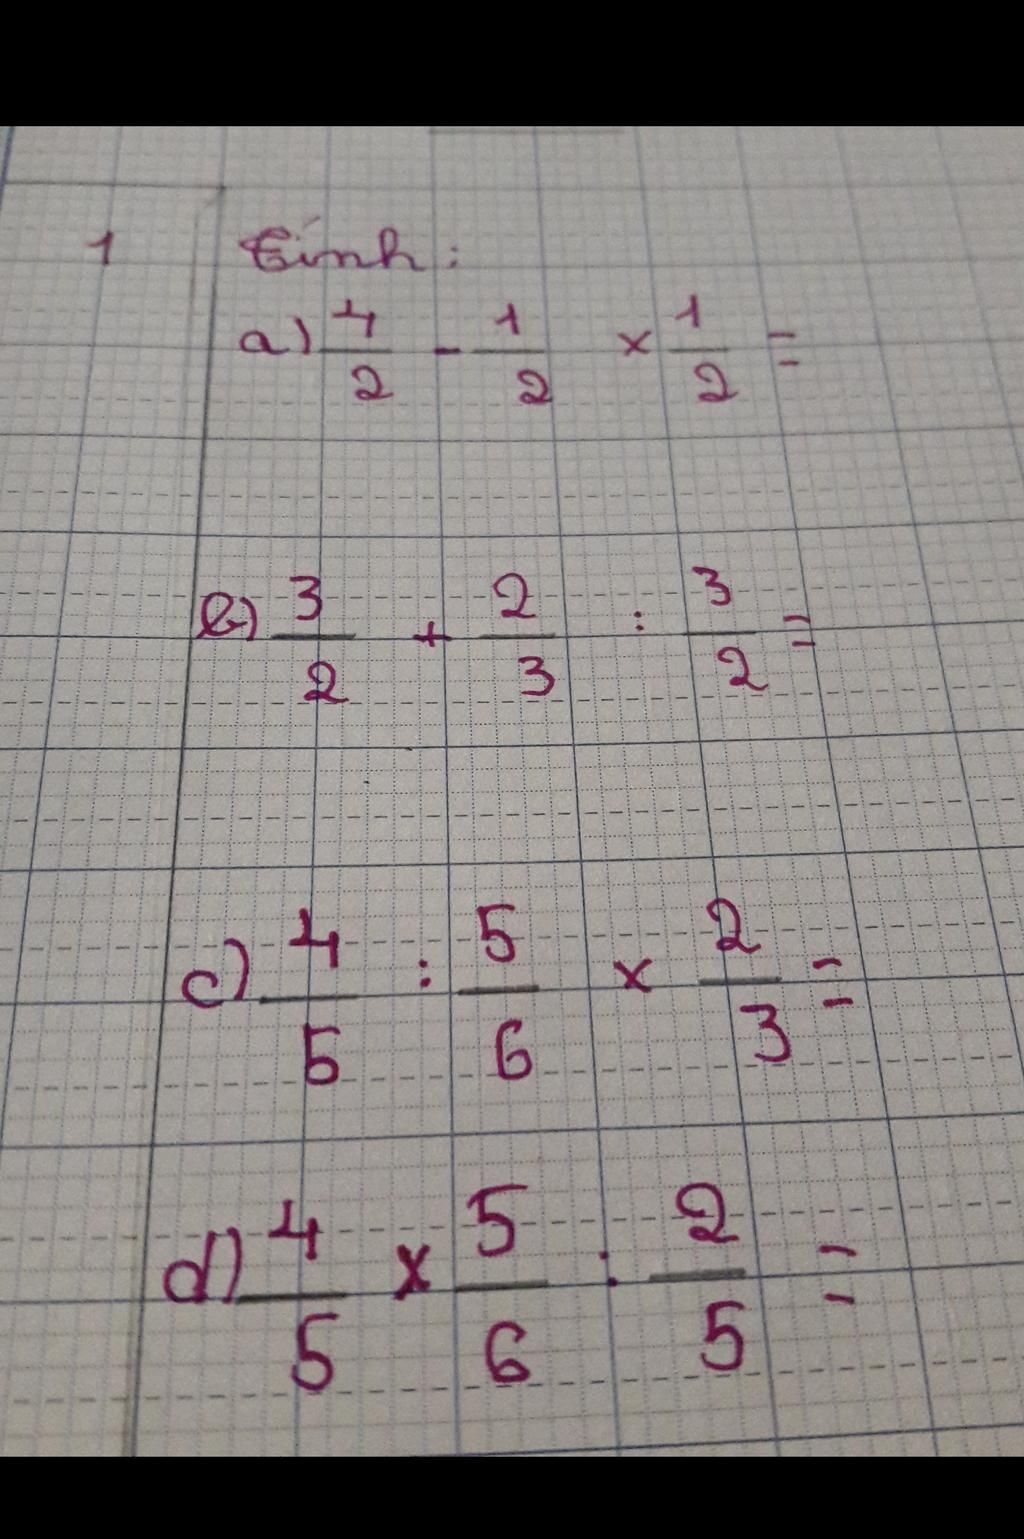 1 Tính:
a) 4/2 - 1/2 × 1/2 =
b) 3/2 + 2/3 : 3/2 =
c) 4/5 : 5/6 × 2/3 =
d) 4/5 × 5/6 : 2/5 =